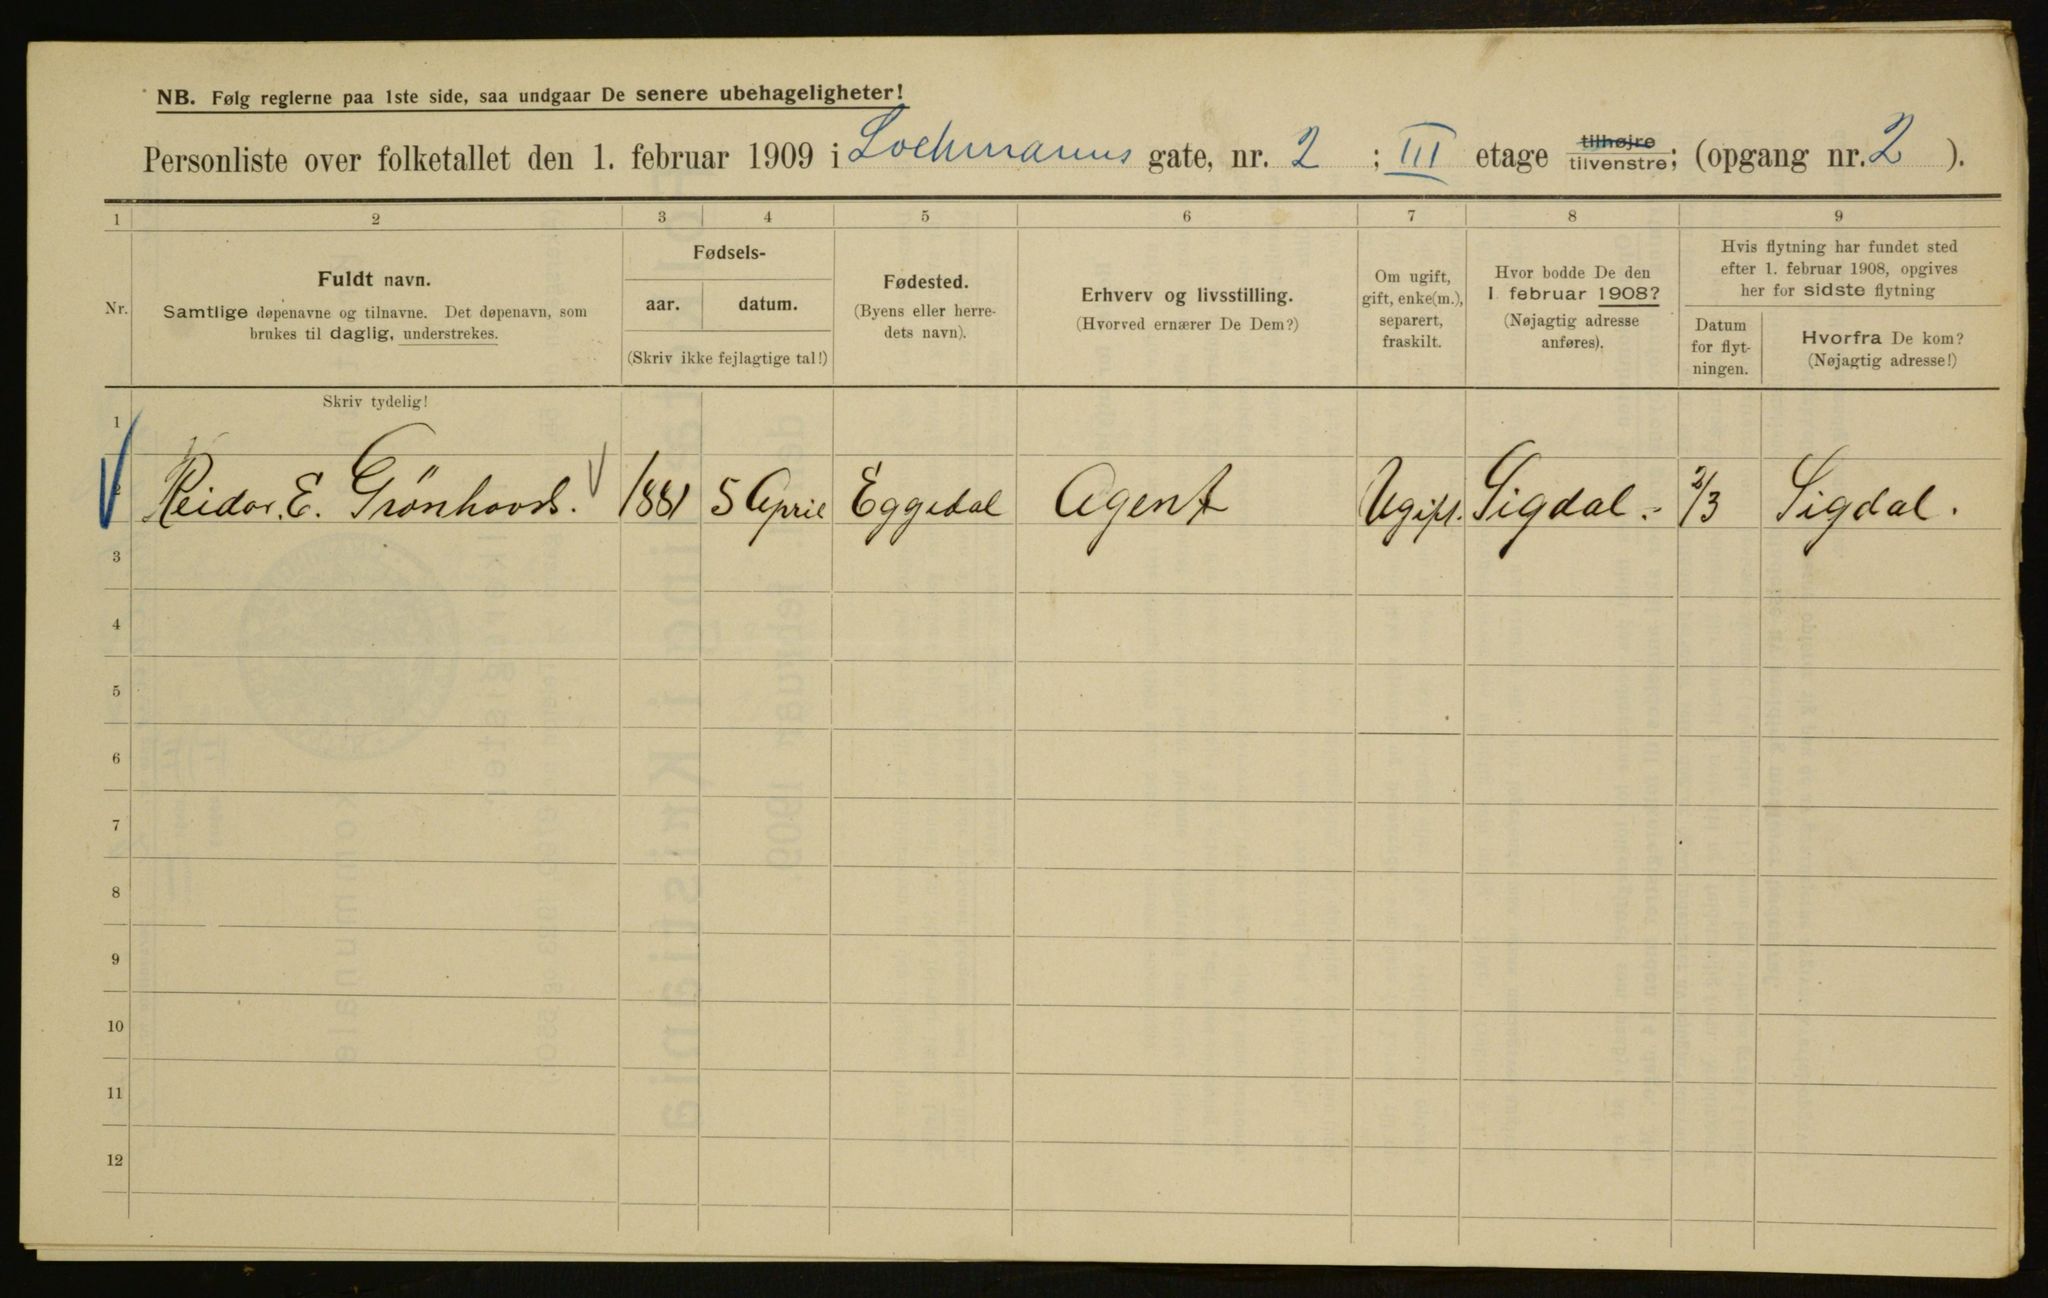 NB. Følg reglerne paa 1ste side, saa undgaar De senere ubehageligheter!
Personliste over folketallet den 1. februar 1909 i Lochmanns gate, nr. 2 ; III etage tilhøjre tilvenstre; (opgang nr. 2 ).
1 2 3 4 5 6 7 8 9
Nr.
Fuldt navn.
Samtlige døpenavne og tilnavne. Det døpenavn, som
brukes til daglig, understrekes.
Fødsels-
aar. datum.
(Skriv ikke fejlagtige tal!)
Fødested.
(Byens eller herre-
dets navn).
Erhverv og livsstilling.
(Hvorved ernærer De Dem?)
Om ugift,
gift, enke(m.),
separert,
fraskilt.
Hvor bodde De den
1 februar 1908?
(Nøjagtig adresse
anføres).
Hvis flytning har fundet sted
efter 1. februar 1908, opgives
her for sidste flytning
Datum
for flyt-
ningen.
Hvorfra De kom?
(Nøjagtig adresse!)
Skriv tydelig!
1
Reidar. E. Grönhovd. 1881 5 April Eggedal Agent Ugift. Sigdal. 2/3 Sigdal.
3
4
5
6
7
8
9
10
11
12